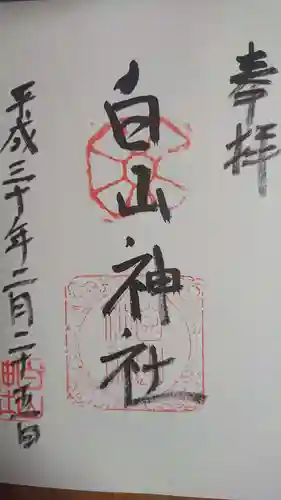 奉拝
白山神社
平成三十年二月二十五日